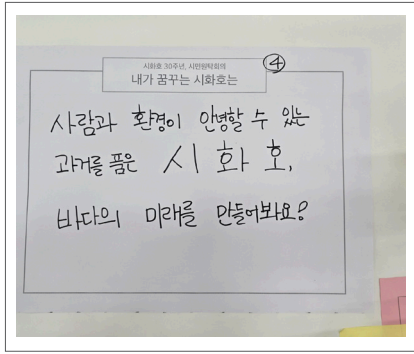 시화호 30주년, 시민원탁회의
④
내가 꿈꾸는 시화호는
사람과 환경이 안녕할 수 있는
과거를 품은 시화호,
바다의 미래를 만들어봐요?